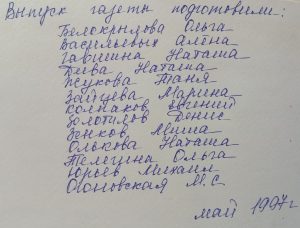 Выпуск газеты подготовили:
Белокрылова Ольга
Васильевых Алёна
Гавшина Наташа
Деева Наташа
Жукова Таня
Зайцева Марина
Колпаков Евгений
Золотилов Денис
Зенков Миша
Олькова Наташа
Телегина Ольга
Юрьев Михаил
Осоновская М.С
май 1997г